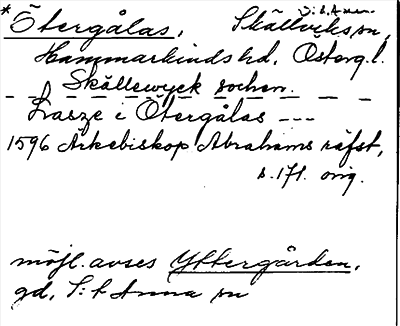 * Ötergålas, Skällviks sn,
S:t Anna
Hammarkinds hd, Österg. l.
_ _ Skällewyck sochen. _ _ _
Lasze i Ötergålas ---
1596 Ärkebiskop Abrahams räfst,
s. 171. orig.
möjl. avses Yttergården,
gd, S:t Anna sn